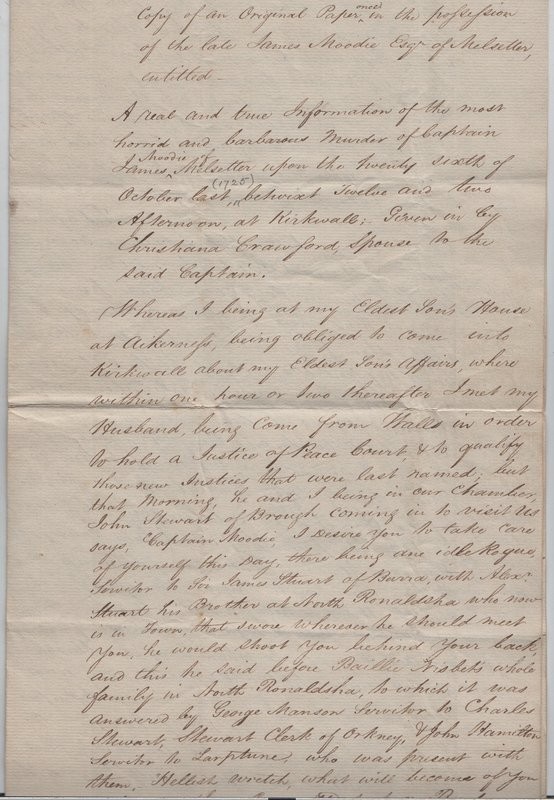 Copy of an Original Paper once in the possession
of the late James Moodie Esqr of Melsetter,
intitled—
A real and true Information of the most
horrid and barbarous Murder of Captain
James Moodie of Melsetter upon the twenty sixth of
October last, (1725) betwixt Twelve and two
Afternoon, at Kirkwall; Given in by
Christiana Crawford, Spouse to the
said Captain.
Whereas I being at my Eldest Son's House
at Ackerness, being obliged to come into
Kirkwall about my Eldest Son's Affairs, where
within one hour or two thereafter I met my
Husband, being come from Walls in order
to hold a Justice of Peace Court & to qualify
those new Justices that were last named; but
that Morning, he and I being in our Chamber,
John Stewart of Brough coming in to visit us
says, Captain Moodie, I desire you to take care
of yourself this Day, there being ane idle Rogue,
Servitor to Sir James Stuart of Burra, with Alexr.
Stuart his Brother at North Ronaldsha who now
is in Town, that swore wherever he should meet
You, he would shoot You behind Your back,
and this he said before Baillie Nisbets whole
family in North Ronaldsha, to which it was
answered by George Manson Servitor to Charles
Stewart, Stewart Clerk of Orkney, & John Hamilton
Servitor to who was present with
them, Hellish Wretch, what will become of You